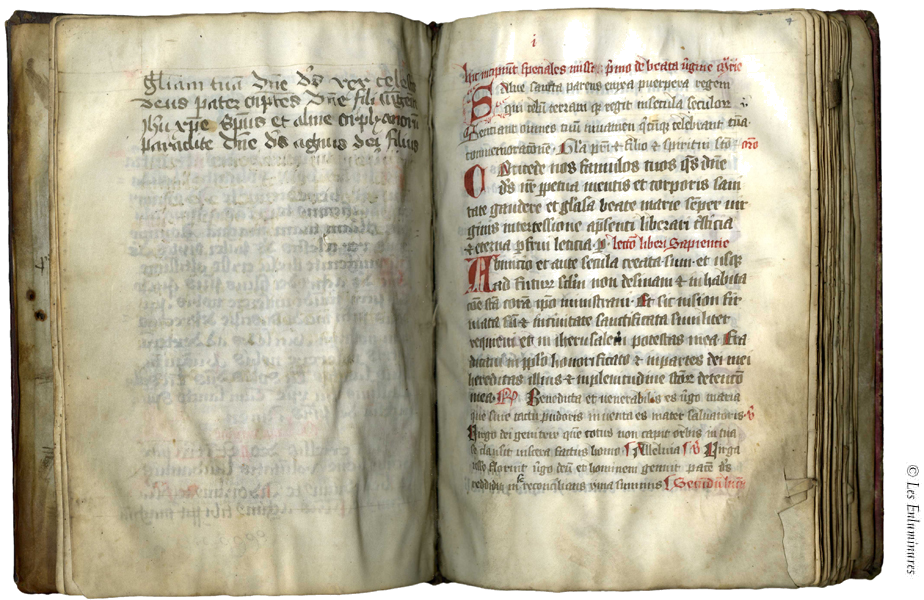 gliam tuā dn̄e d̄s rex celest
deus pater oīptēs dn̄e fili unigen
ihu xp̄e spūs et alme orphanorū
paraclite dn̄e d̄s agnus dei filius
i
hic incipiūt speciales misse p̄mo de beata v̄gine
Salve sancta parens enixa puerpera regem
qui celū terram q̄ regit in secula seculorū
Sentiant omnes tuū iuvamen q̄cūq̄ celebrant tuā
cōmemorationē Gl̄a pr̄i & filio & spiritui scō oro
Concede nos famulos tuos q̄s dn̄e
d̄s nr̄ ꝑpetua mentis et corporis sani
tate gaudere et gl̄iosa beate marie semper vir
ginis intercessione a pn̄senti liberari tristicia
& eterna ꝑfrui leticia ꝑ lectō libri Sapientie
Ab inicio et ante secula creata sum et usq̄
ad futurū sclm̄ non desinam & in habita
cōe scā corā ip̄o ministravi Et sic in sion fir
mata sū & in civitate sanctificata similiter
requievi et in iherusalem potestas mea Et ra
dicavi in pplō honorificato & in partes dei mei
hereditas illius & in plenitudine scōr detentō
mea R̄ Benedicta et venerabilis es v̄go maria
que sine tactu pudoris inventa es mater salvatoris v̄
Virgo dei genitrix quē totus non capit orbis in tua
se clausit viscera factus homo Alleluia v̄ Virga
yesse floruit v̄go deū et hominem genuit pacē d̄s
reddidit in se reconcilians yma summis Secundū lucā
© Les Enluminures